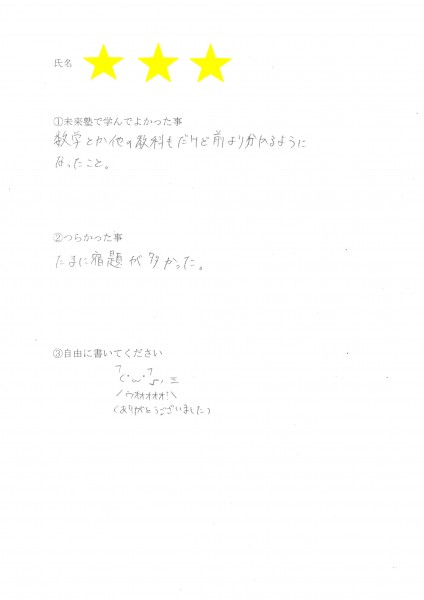 氏名
①未来塾で学んでよかった事
数学とか他の教科もだけど前より分かるように
なったこと。
②つらかった事
たまに宿題が多かった。
③自由に書いてください
＼ウオォォォォ!＼
(ありがとうございました)